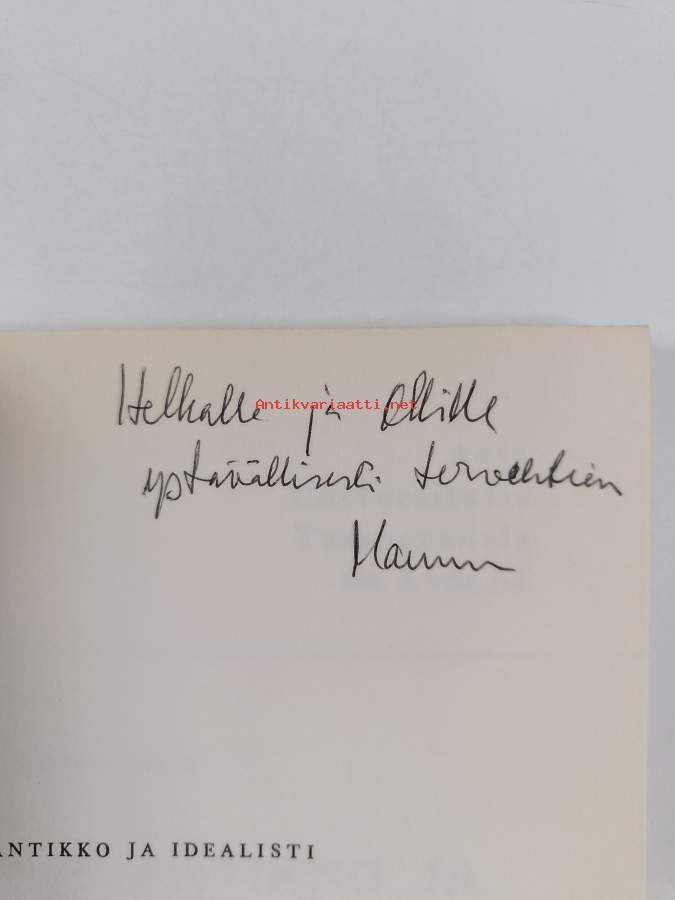 Helkalle ja Ollille
Antikvariaatti.net
ystävällisesti tervehtien
Hannu
ANTIKKO JA IDEALISTI